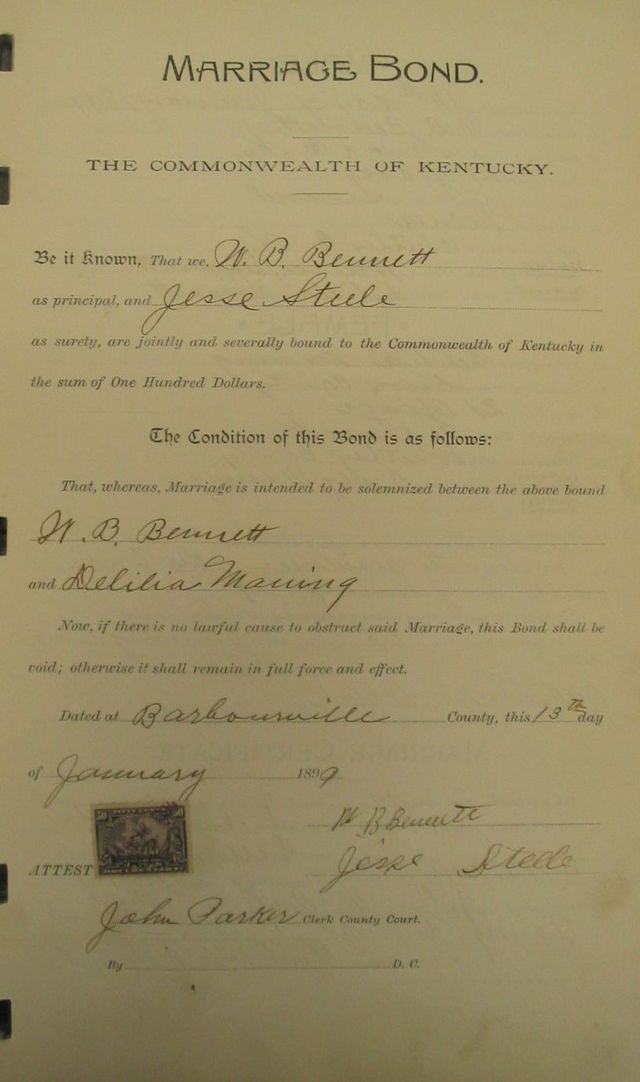 MARRIAGE BOND.
THE COMMONWEALTH OF KENTUCKY.
Be it Known, That we, W. B. Bennett
as principal, and Jesse Steele
as surety, are jointly and severally bound to the Commonwealth of Kentucky in
the sum of One Hundred Dollars.
The Condition of this Bond is as follows:
That, whereas, Marriage is intended to be solemnized between the above bound
W. B. Bennett
and Delilia Maning
Now, if there is no lawful cause to obstruct said Marriage, this Bond shall be
void; otherwise it shall remain in full force and effect.
Dated at Barbourville County, this 13th day
of January 1899
50 50
W B Bennett
ATTEST
Jesse Steele
John Parker Clerk County Court.
By D. C.